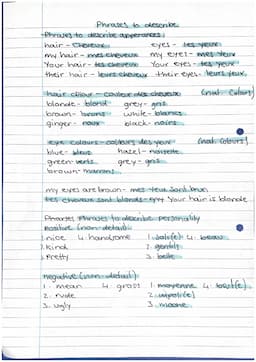 Phrases to describe
Phrases to describe appearance:
hair - cheveux eyes - les yeux
my hair - mes cheveux my eyes - mes yeux
Your hair - tes cheveux Your eyes - tes yeux
their hair - leurs cheveux their eyes - leurs yeux
hair colour - couleur des cheveux (nat. colours)
blonde - blond grey - gris
brown - bruns white - blancs
ginger - roux black - noirs
eye colours - couleurs des yeux (nat. colours)
blue - bleus hazel - noisette
green - verts grey - gris
brown - marrons
my eyes are brown - mes yeux sont brun
tes cheveux sont blonds - Your hair is blonde
Phrases to describe personality
Positive (non-detail):
1. nice 4. handsome 1. 4. beau
2. kind 2. gentil
3. Pretty 3. belle
negative (non-detail):
1. mean 4. gross 1. moyenne 4.
2. rude 2. impoli(e)
3. ugly 3. moche